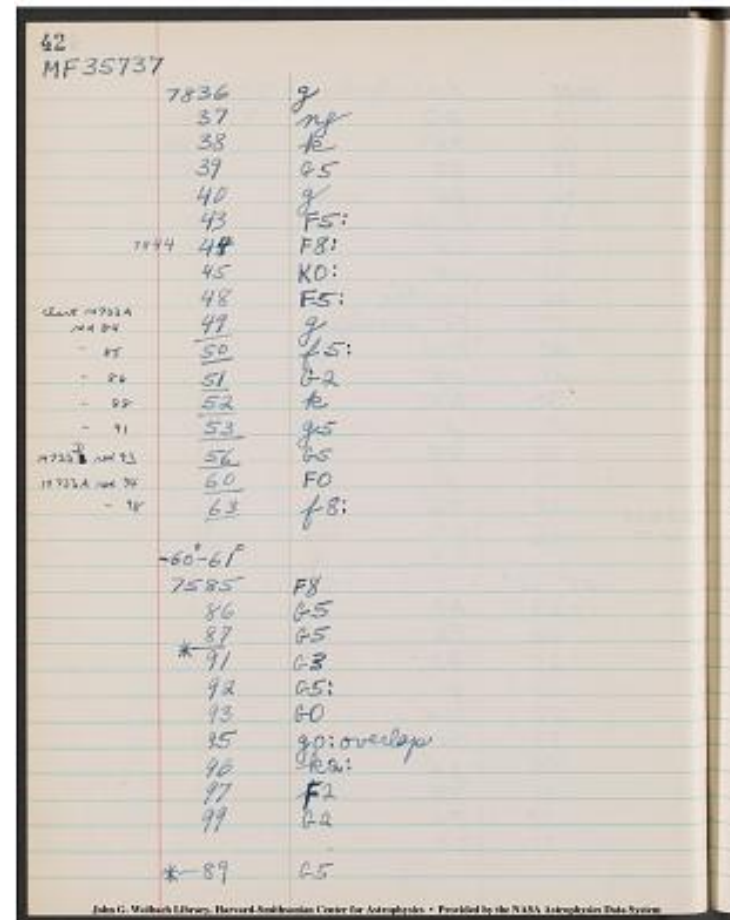 42
MF35737
7836 g
37 ng
38 k
39 G5
40 g
43 F5:
7844 44 F8:
45 K0:
48 F5:
49 g
50 f5:
- 85
51 G2
- 86
52 k
- 88
53 g5
- 91
56 G5
60 F0
63 f8:
- 98
-60°-61°
7585 F8
86 G5
87 G5
*-91 G3
92 G5:
93 G0
95 g0: overlap
96 k2:
97 F2
99 G2
*-89 G5
John G. Wolbach Library, Harvard-Smithsonian Center for Astrophysics • Provided by the NASA Astrophysics Data System